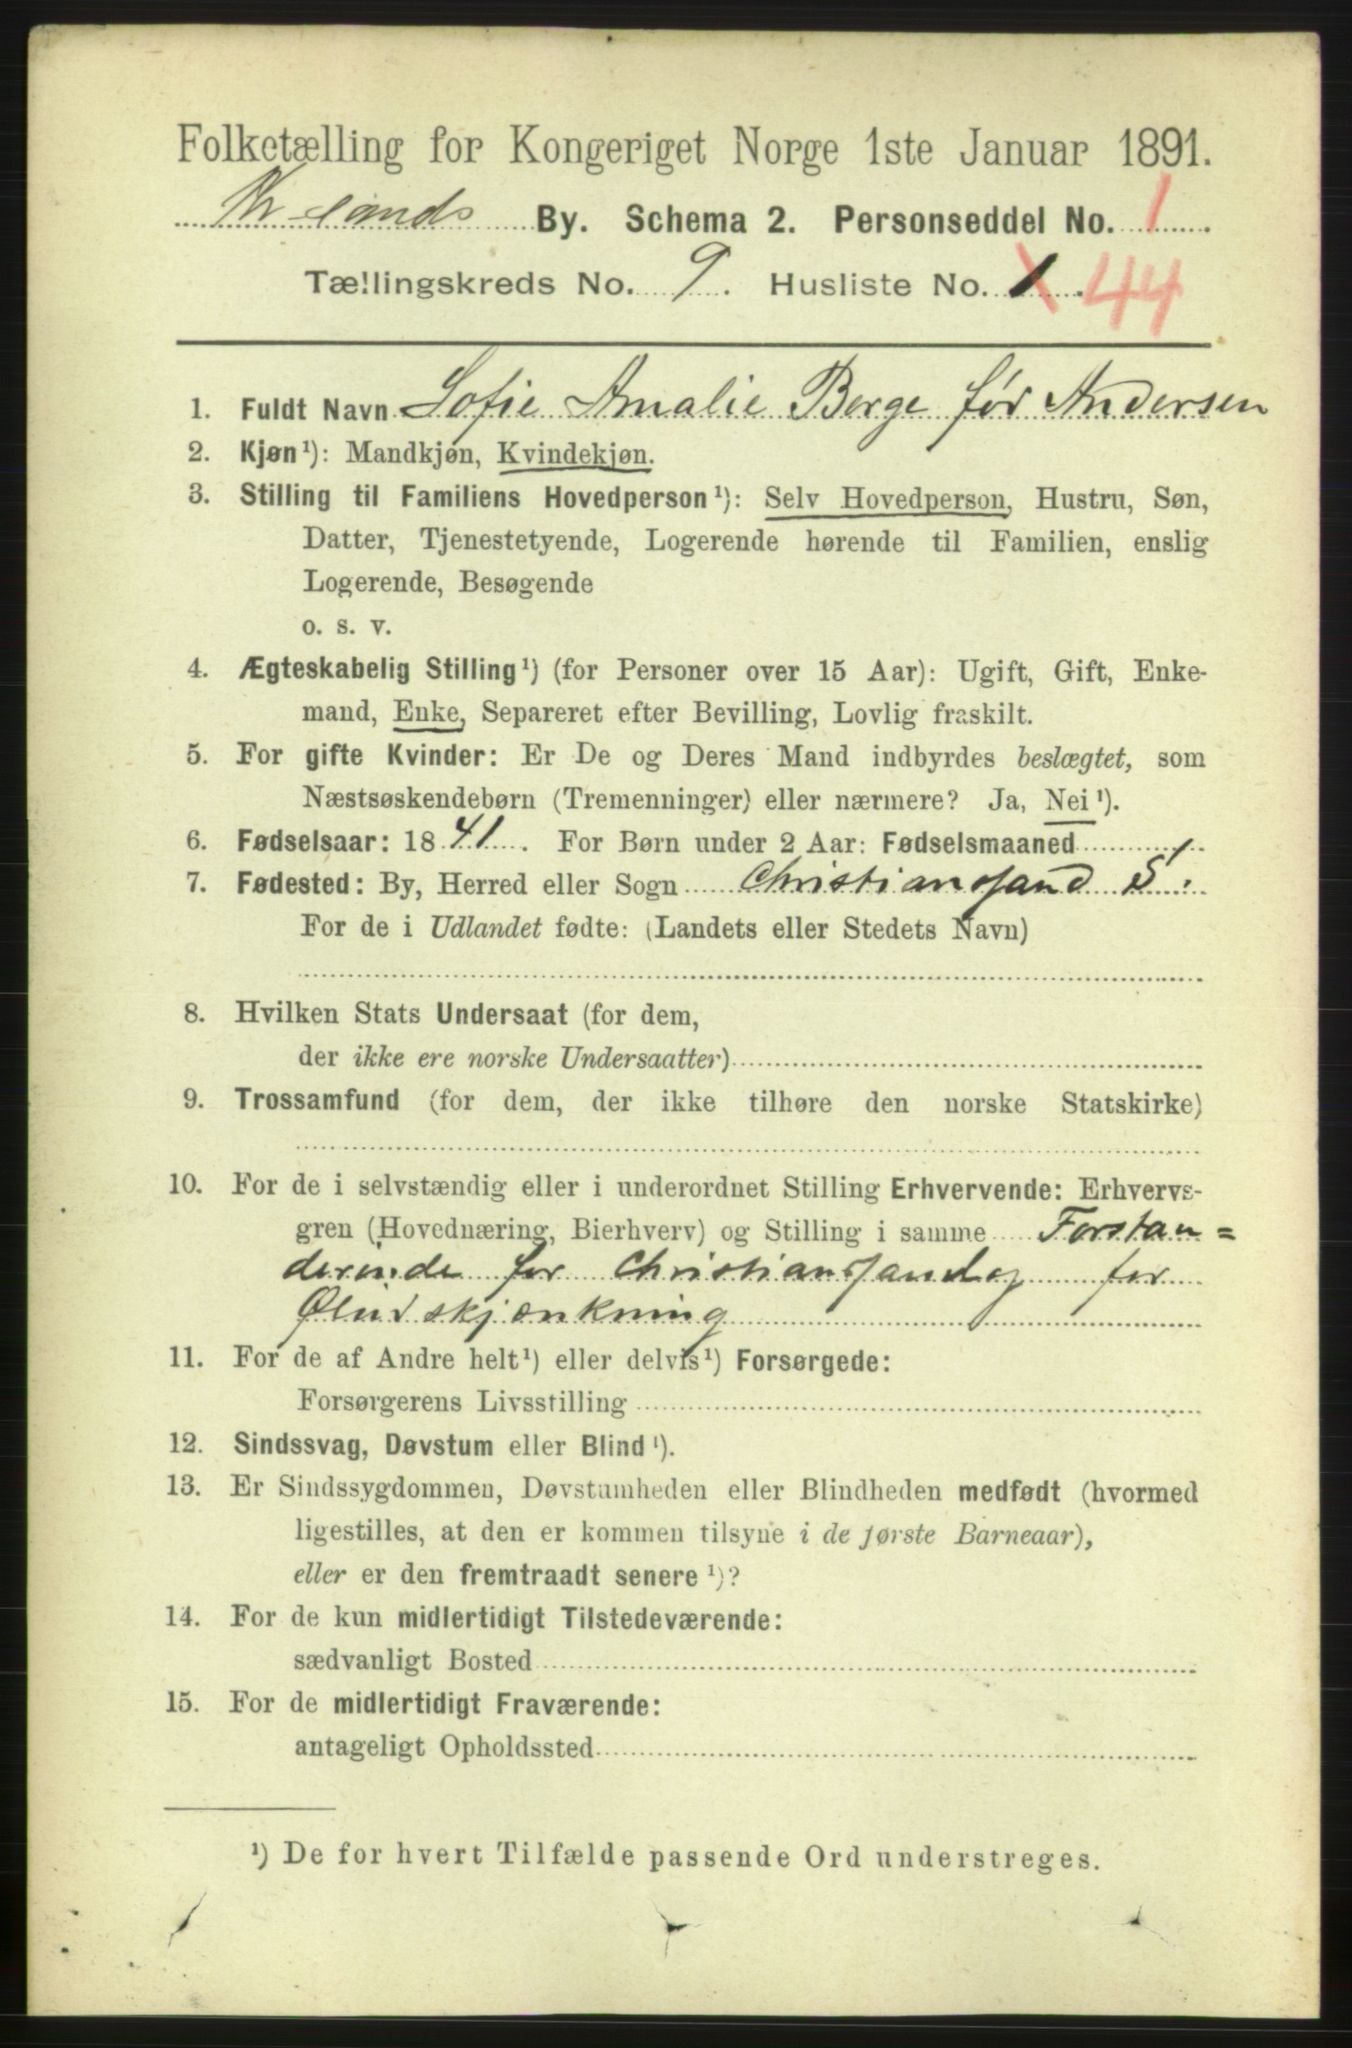 Folketælling for Kongeriget Norge 1ste Januar 1891.
Kr-sands By. Schema 2. Personseddel No. 1
Tællingskreds No. 9. Husliste No. 1. 44
1. Fuldt Navn Sofie Amalie Berge før Andersen
2. Kjøn¹): Mandkjøn, Kvindekjøn.
3. Stilling til Familiens Hovedperson¹): Selv Hovedperson, Hustru, Søn,
Datter, Tjenestetyende, Logerende hørende til Familien, enslig
Logerende, Besøgende
o. s. v.
4. Ægteskabelig Stilling¹) (for Personer over 15 Aar): Ugift, Gift, Enke-
mand, Enke, Separeret efter Bevilling, Lovlig fraskilt.
5. For gifte Kvinder: Er De og Deres Mand indbyrdes beslægtet, som
Næstsøskendebørn (Tremenninger) eller nærmere? Ja, Nei¹).
6. Fødselsaar: 1841. For Børn under 2 Aar: Fødselsmaaned
7. Fødested: By, Herred eller Sogn Christianssand S.
For de i Udlandet fødte: (Landets eller Stedets Navn)
8. Hvilken Stats Undersaat (for dem,
der ikke ere norske Undersaatter)
9. Trossamfund (for dem, der ikke tilhøre den norske Statskirke)
10. For de i selvstændig eller i underordnet Stilling Erhvervende: Erhvervs-
gren (Hovednæring, Bierhverv) og Stilling i samme Forstan=
derinde for Christianssands for
Øludskjænkning
11. For de af Andre helt¹) eller delvis¹) Forsørgede:
Forsørgerens Livsstilling
12. Sindssvag, Døvstum eller Blind¹).
13. Er Sindssygdommen, Døvstumheden eller Blindheden medfødt (hvormed
ligestilles, at den er kommen tilsyne i de første Barneaar),
eller er den fremtraadt senere¹)?
14. For de kun midlertidigt Tilstedeværende:
sædvanligt Bosted
15. For de midlertidigt Fraværende:
antageligt Opholdssted
¹) De for hvert Tilfælde passende Ord understreges.